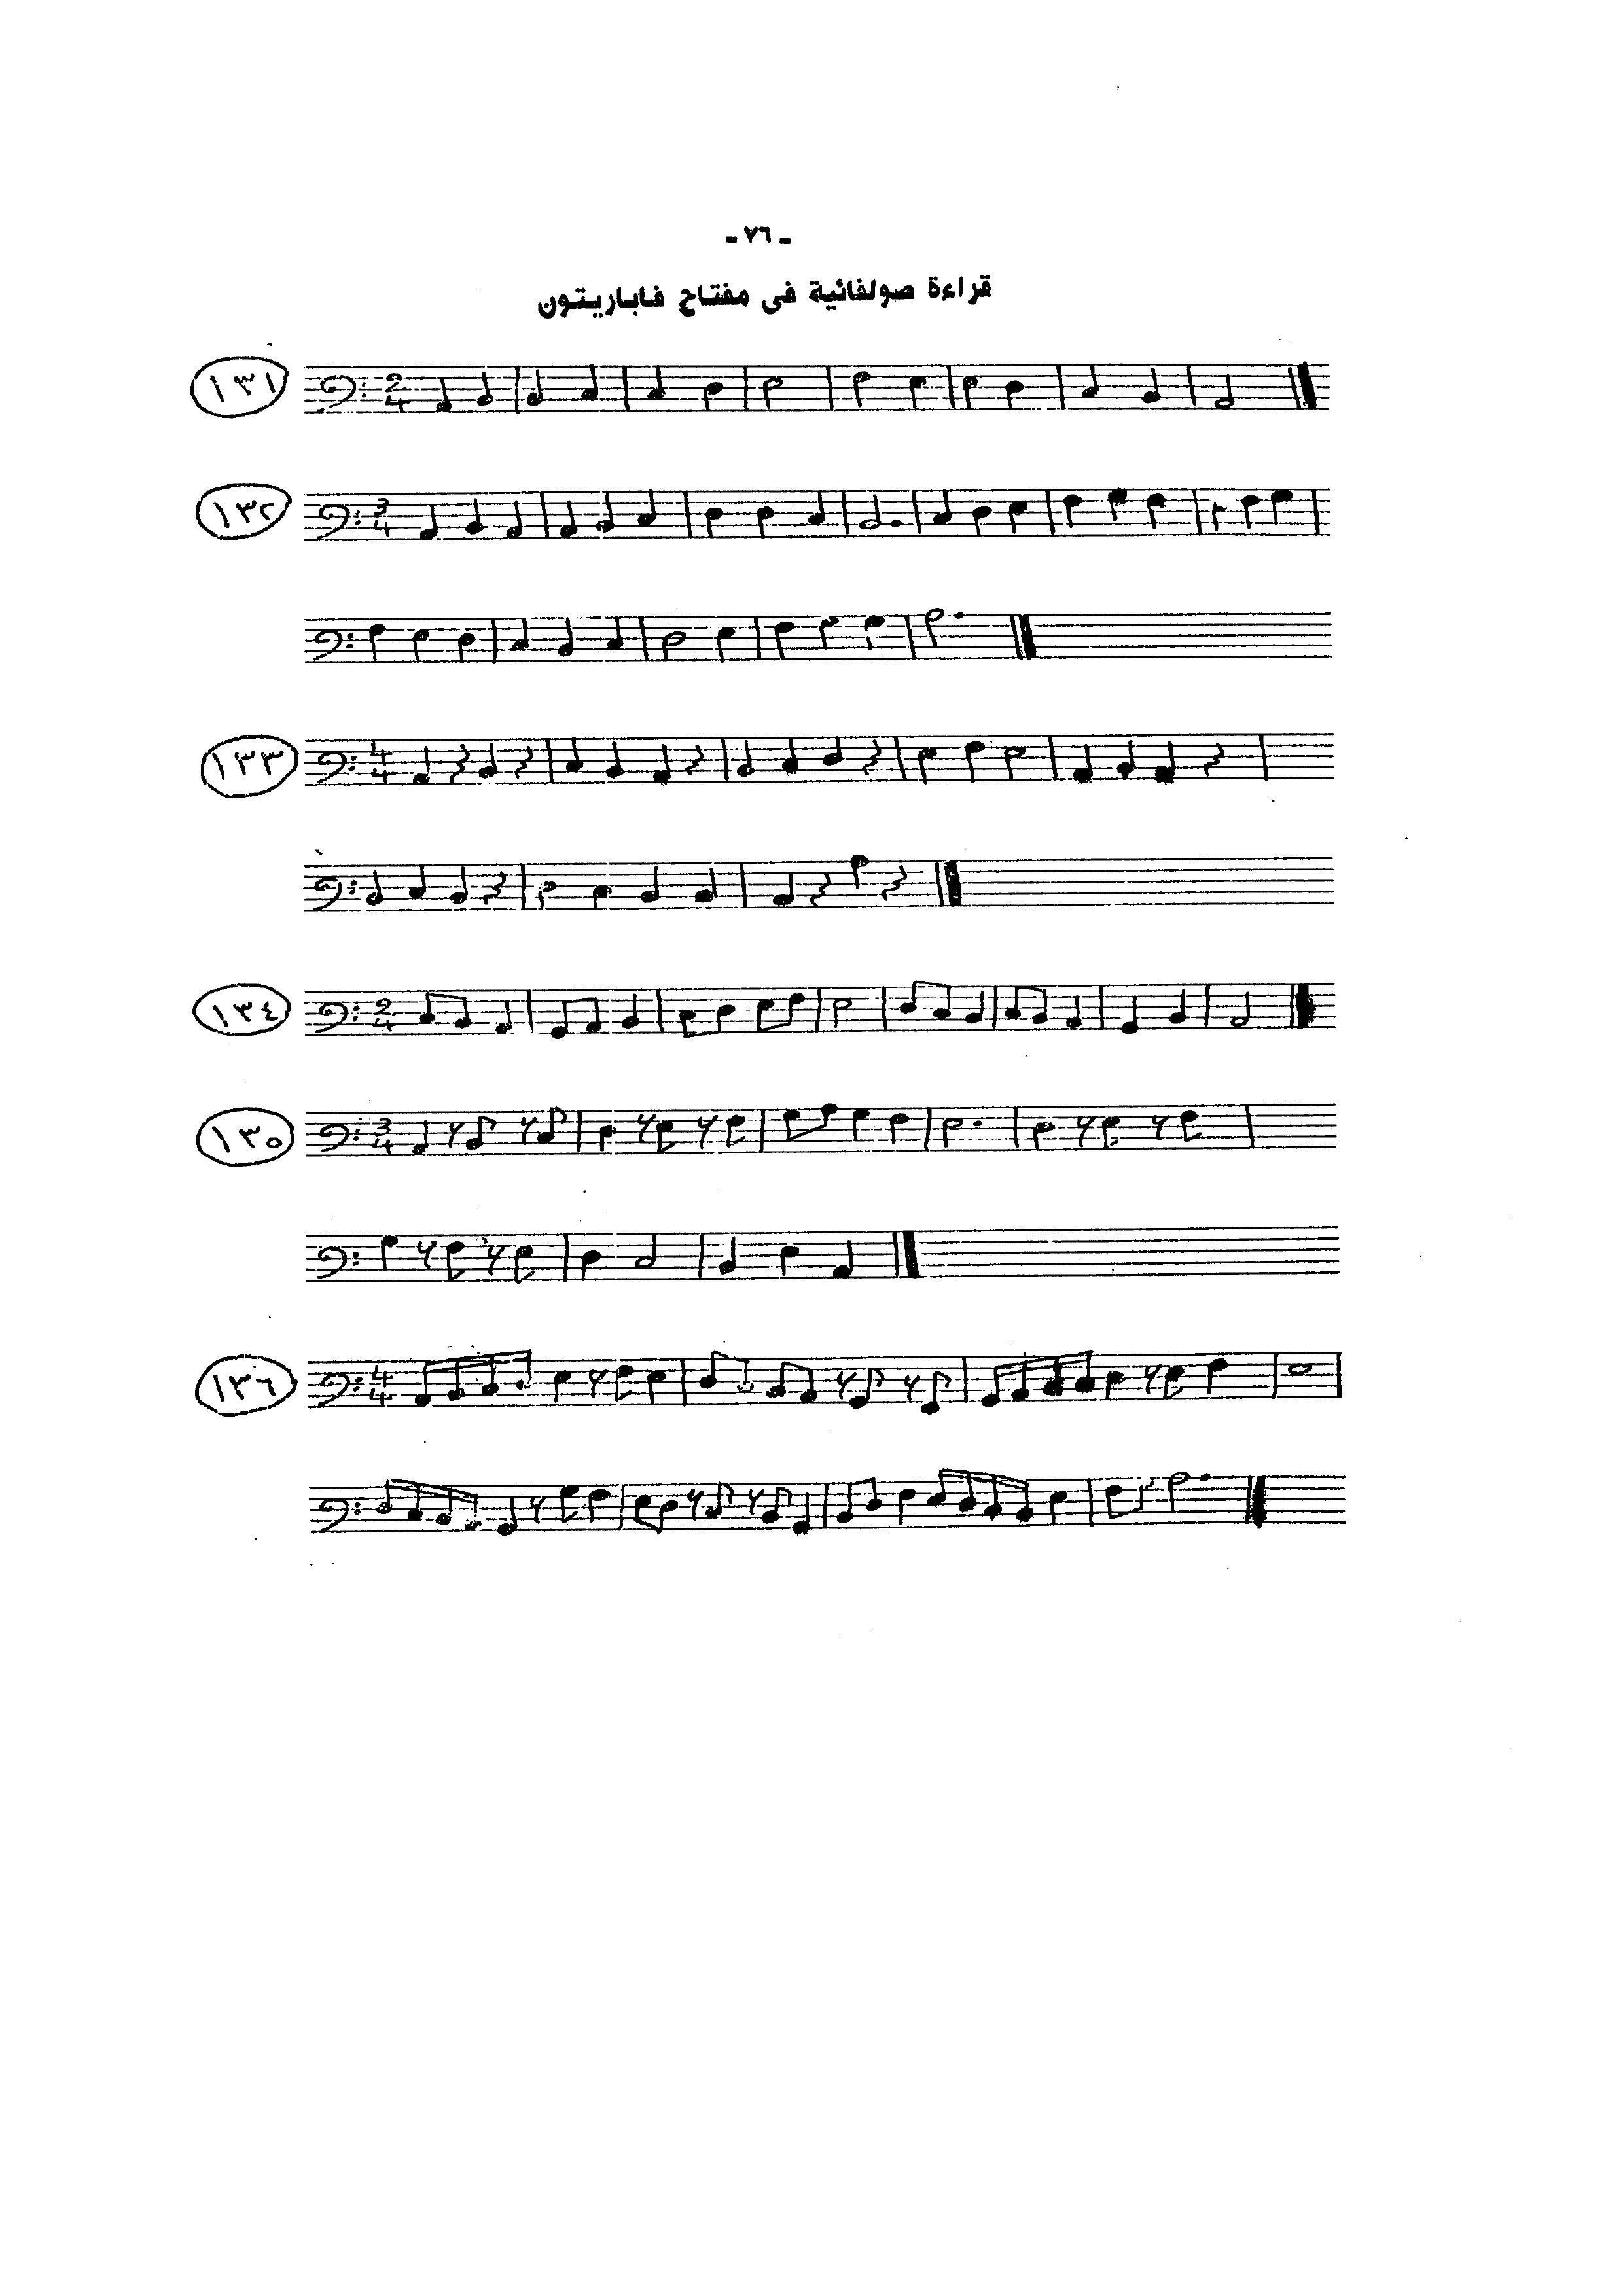 - ٧٦ -
قراءة صولفائية فى مفتاح فاباريتون
١٣١
2
4
١٣٢
3
4
١٣٣
4
4
١٣٤
2
4
١٣٥
3
4
١٣٦
4
4